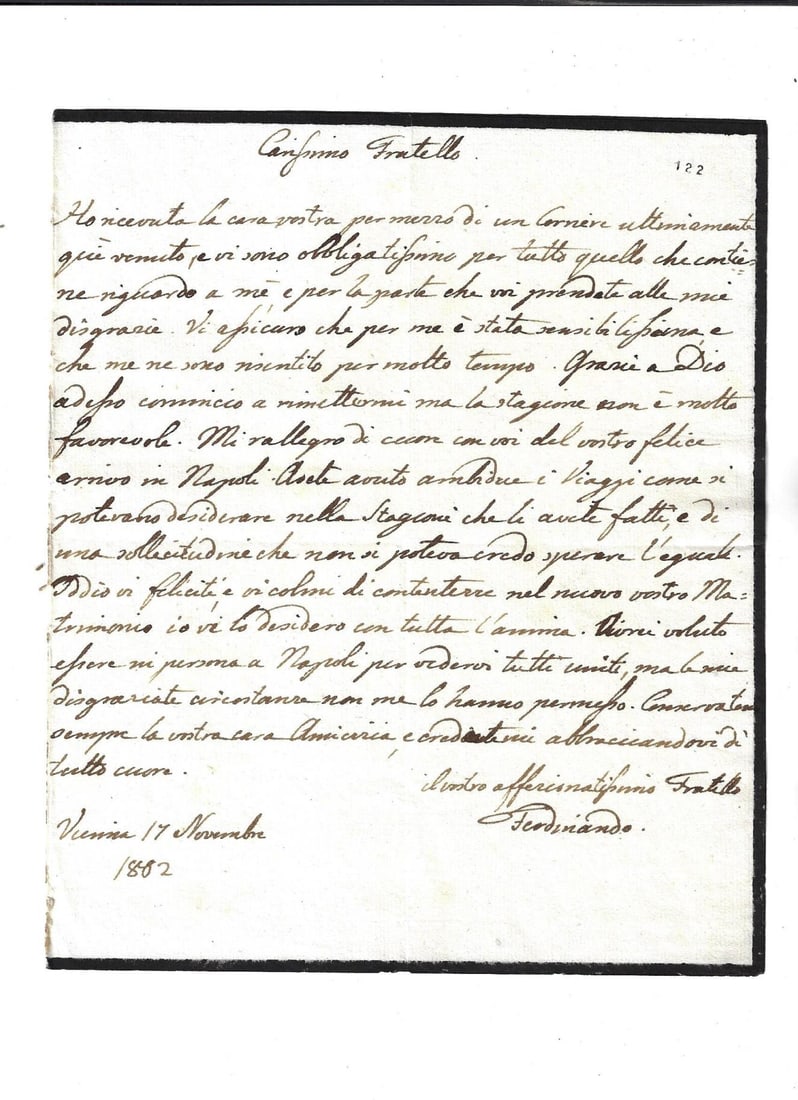 Carissimo Fratello.
122
Ho ricevuta la cara vostra per mezzo di un Corriere ultimamente
quì venuto, e vi sono obbligatissimo per tutto quello che contie=
ne riguardo a mè, e per la parte che voi prendete alle mie
disgrazie. Vi assicuro che per me è stata sensibilissima, e
che me ne sono risentito per molto tempo. Grazie a Dio
adesso comincio a rimettermi ma la stagione non è molto
favorevole. Mi rallegro di cuore con voi del vostro felice
arrivo in Napoli. Avete avuto ambidue i Viaggi come si
potevano desiderare nella Stagione che li avete fatti, e di
una sollecitudine che non si poteva credo sperare l'eguale.
Iddio vi feliciti, e vi colmi di contentezze nel nuovo vostro Ma=
trimonio io vi lo desidero con tutta l'anima. Avrei voluto
essere in persona a Napoli per vedervi tutti uniti, ma le mie
disgraziate circostanze non me lo hanno permesso. Conservatemi
sempre la vostra cara Amicizia, e credetemi abbracciandovi di
tutto cuore.
il vostro affezionatissimo Fratello
Ferdinando.
Vienna 17 Novembre
1802